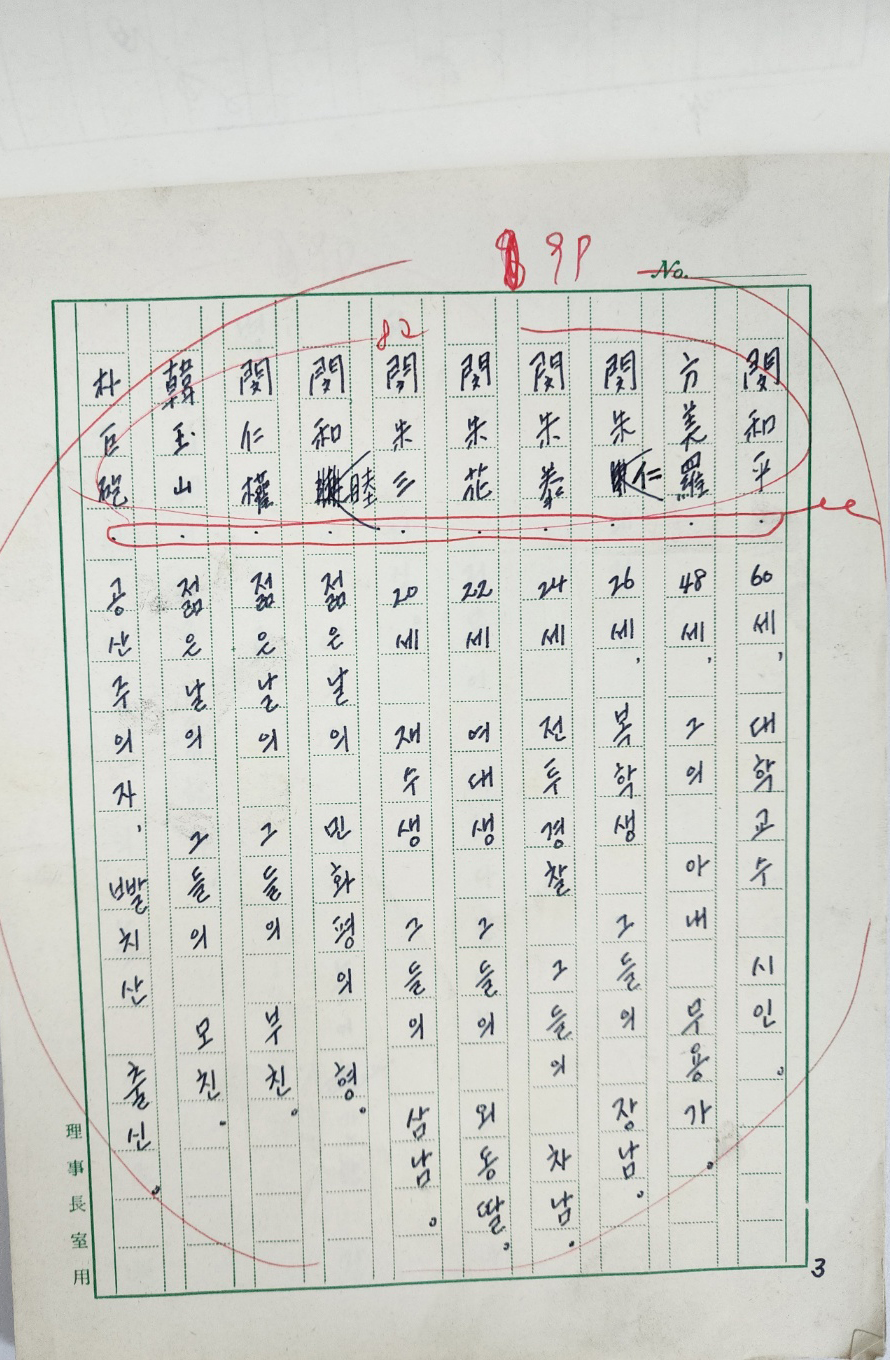 89P
No.
82
閔和平 · 60세, 대학교수 시인。
方美羅 · 48세, 그의 아내 무용가。
閔朱仁 · 26세, 복학생 그들의 장남。
閔朱泰 · 24세 전투경찰 그들의 차남.
閔朱花 · 22세 여대생 그들의 외동딸。
閔朱三 · 20세 재수생 그들의 삼남。
閔和睦 · 젊은 날의 민화평의 형。
閔仁權 · 젊은 날의 그들의 부친。
韓玉山 · 젊은 날의 그들의 모친.
朴巨砲 · 공산주의자, 빨치산 출신。
理事長室用
3